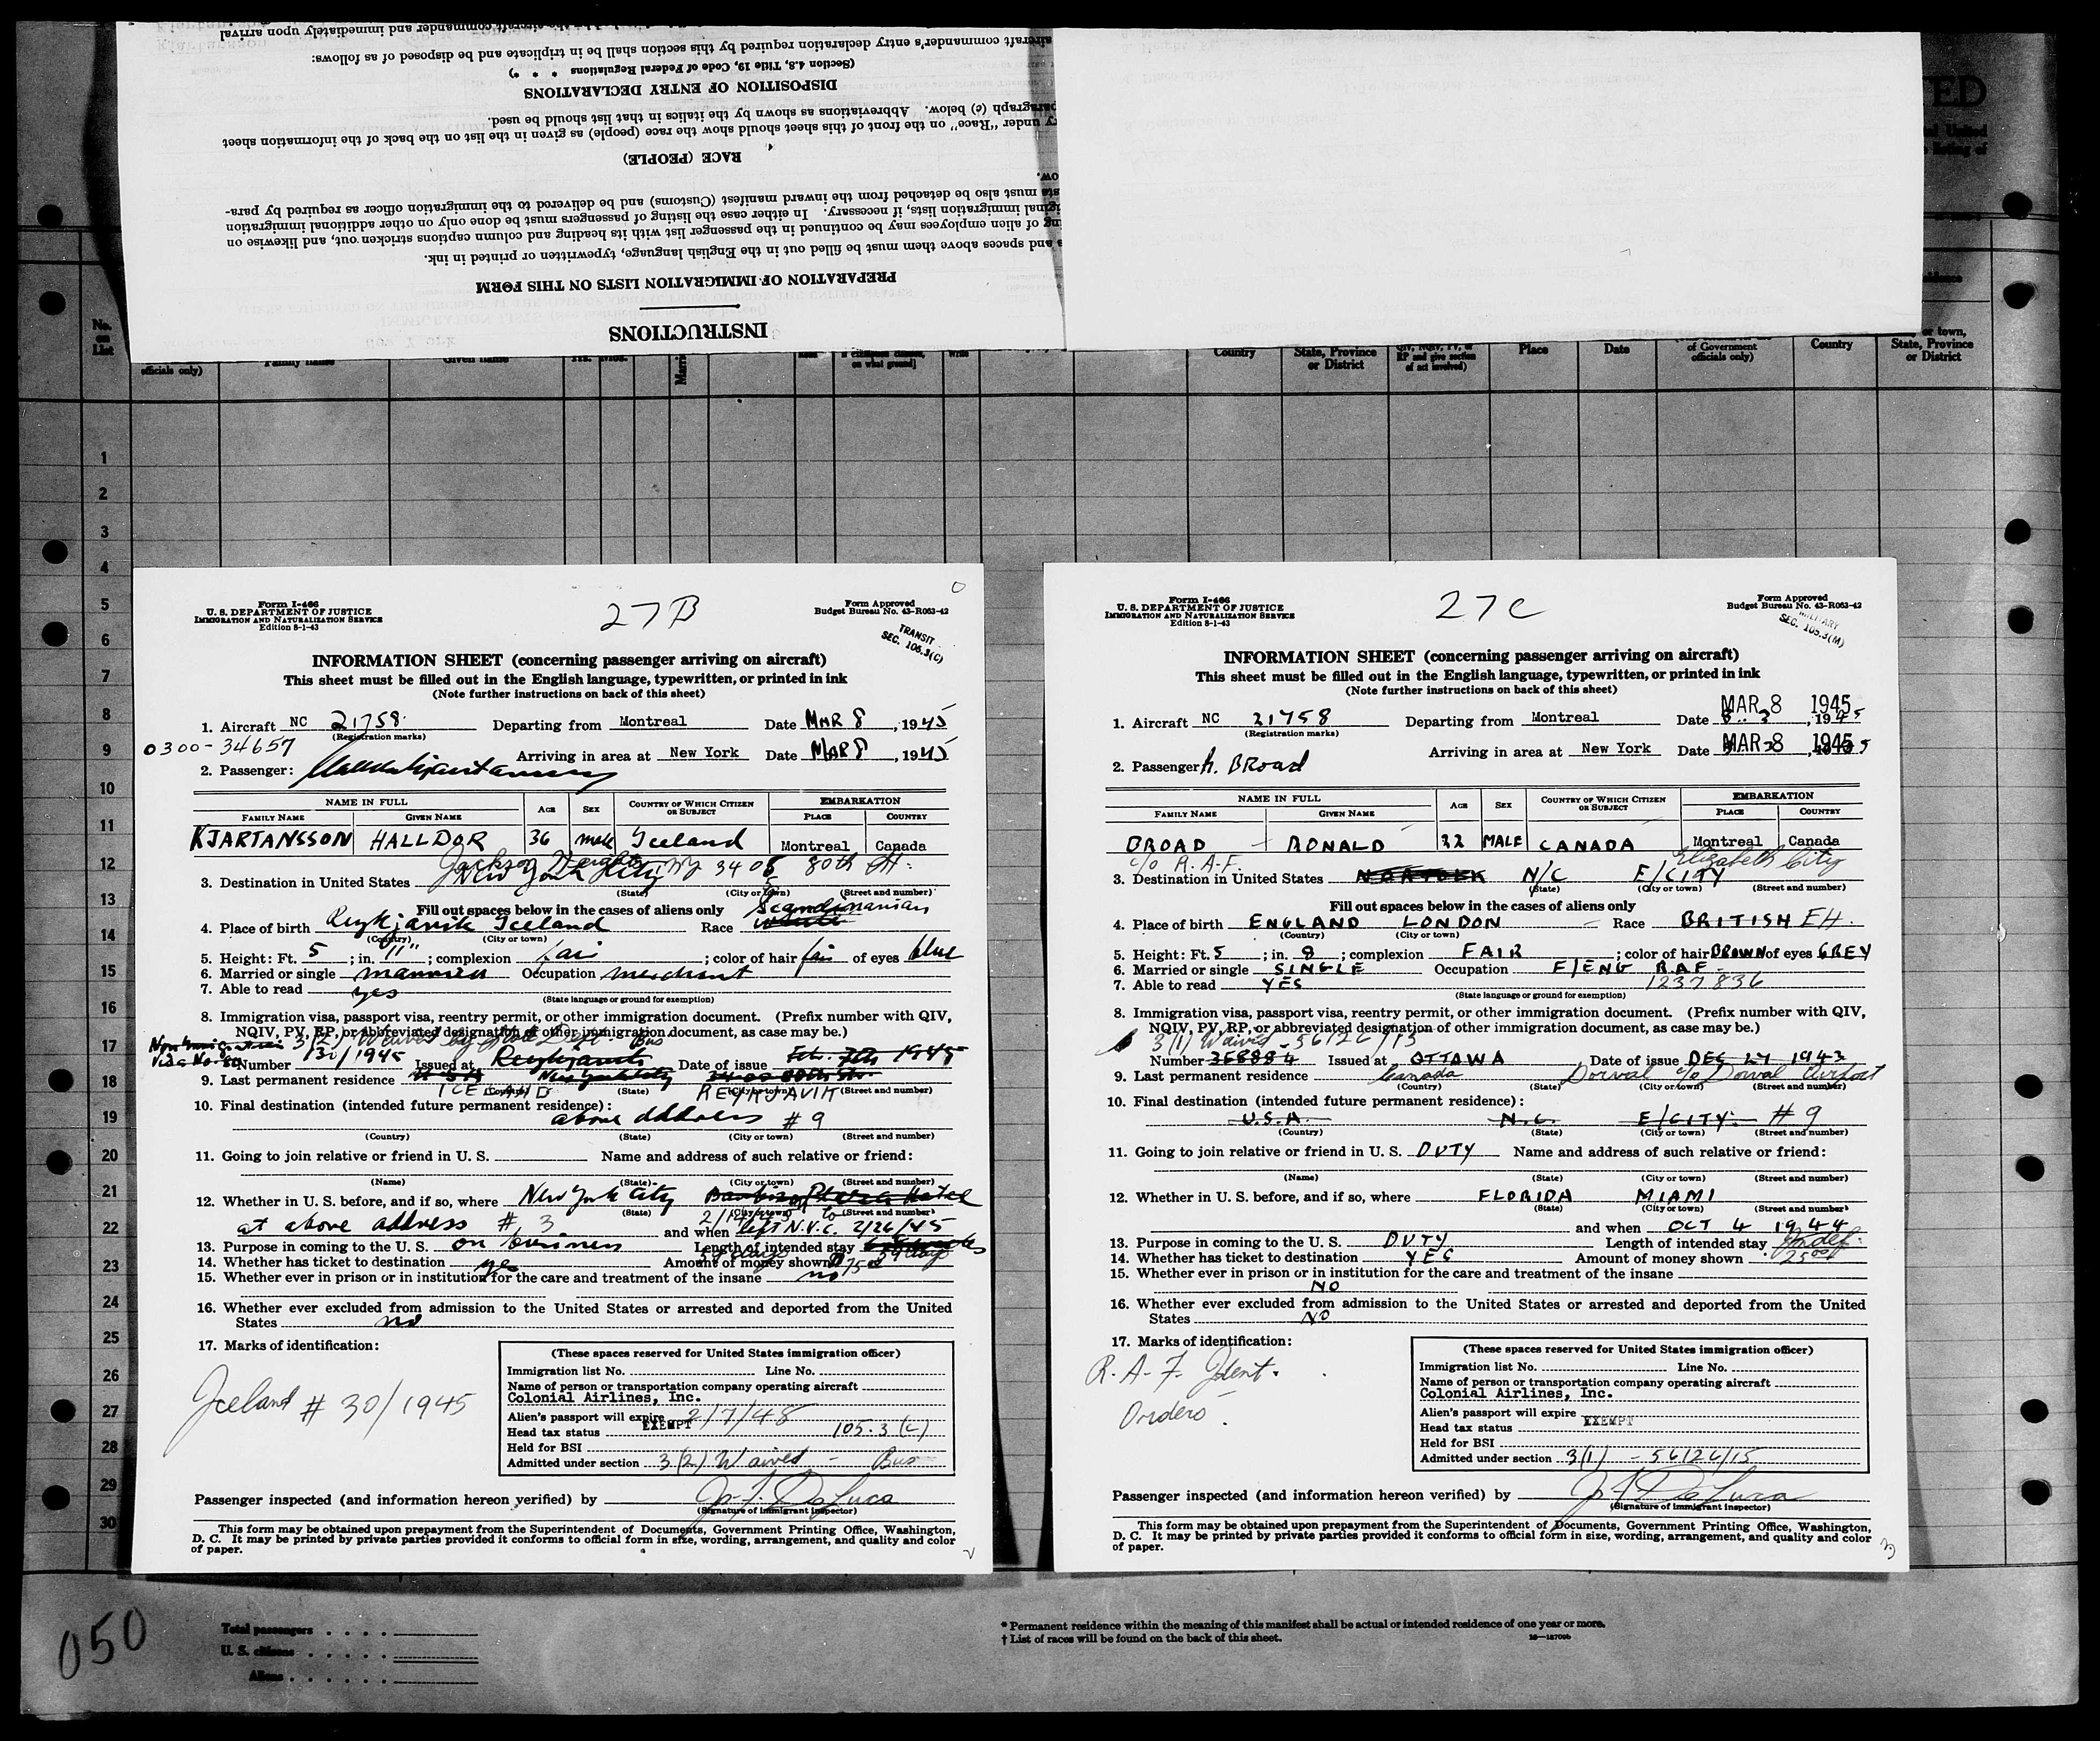 aircraft commander and immediately upon arrival
aircraft commander's entry declaration required by this section shall be in triplicate and be disposed of as follows:
(Section 4.8, Title 19, Code of Federal Regulations * * *)
DISPOSITION OF ENTRY DECLARATIONS
paragraph (e) below. Abbreviations as shown by the italics in that list should be used.
under "Race" on the front of this sheet should show the race (people) as given in the list on the back of the information sheet
RACE (PEOPLE)
must also be detached from the inward manifest (Customs) and be delivered to the immigration officer as required by para-
immigration lists, if necessary. In either case the listing of passengers must be done only on other additional immigration
of alien employees may be continued in the passenger list with its heading and column captions stricken out, and likewise on
and spaces above them must be filled out in the English language, typewritten or printed in ink.
PREPARATION OF IMMIGRATION LISTS ON THIS FORM
INSTRUCTIONS
No. on List
officials only) Family name Given name Yrs. Mos. on what ground]
Country State, Province or District RP and give section of act involved) Place Date of Government officials only) Country or town, State, Province or District
1
2
3
4
5
6
7
8
9
10
11
12
13
14
15
16
17
18
19
20
21
22
23
24
25
26
27
28
29
30
Form I-466
U. S. DEPARTMENT OF JUSTICE
IMMIGRATION AND NATURALIZATION SERVICE
Edition 8-1-43
27B
Form Approved
Budget Bureau No. 43-R063-42
TRANSIT
SEC. 105.3(C)
INFORMATION SHEET (concerning passenger arriving on aircraft)
This sheet must be filled out in the English language, typewritten, or printed in ink
(Note further instructions on back of this sheet)
1. Aircraft NC 21758 Departing from Montreal Date MAR 8, 1945
(Registration marks)
0300-34657
Arriving in area at New York Date MAR 8, 1945
2. Passenger:
NAME IN FULL AGE SEX COUNTRY OF WHICH CITIZEN OR SUBJECT EMBARKATION
FAMILY NAME GIVEN NAME PLACE COUNTRY
KJARTANSSON HALLDOR 36 male Iceland Montreal Canada
Jackson Heights NY 3405 80th St.
3. Destination in United States New York City
(State) (City or town) (Street and number)
Fill out spaces below in the cases of aliens only Scandinavian
4. Place of birth Reykjavik Iceland Race white
(Country) (City or town)
5. Height: Ft. 5 ; in. 11" ; complexion fair ; color of hair fair of eyes blue
6. Married or single married Occupation merchant
7. Able to read yes
(State language or ground for exemption)
8. Immigration visa, passport visa, reentry permit, or other immigration document. (Prefix number with QIV,
NQIV, PV, RP, or abbreviated designation of other immigration document, as case may be.)
3(2) Waived by State Dept. Bus
Number 30/1945 Issued at Reykjavik Date of issue Feb. 7th 1945
9. Last permanent residence USA New York City 34-05 80th St.
ICELAND REYKJAVIK
(Country) (State) (City or town) (Street and number)
10. Final destination (intended future permanent residence):
above address #9
(Country) (State) (City or town) (Street and number)
11. Going to join relative or friend in U. S. Name and address of such relative or friend:
(Name) (State) (City or town) (Street and number)
12. Whether in U. S. before, and if so, where New York City
(State) (City or town) (Street and number)
at above address # 3 and when left N.Y.C. 2/26/45
13. Purpose in coming to the U. S. on business Length of intended stay 59 days
14. Whether has ticket to destination yes Amount of money shown $75
15. Whether ever in prison or in institution for the care and treatment of the insane no
16. Whether ever excluded from admission to the United States or arrested and deported from the United
States no
17. Marks of identification:
Iceland # 30/1945
(These spaces reserved for United States immigration officer)
Immigration list No. Line No.
Name of person or transportation company operating aircraft
Colonial Airlines, Inc.
Alien's passport will expire 2/7/48
Head tax status EXEMPT 105.3(C)
Held for BSI
Admitted under section 3(2) Waived - Bus
Passenger inspected (and information hereon verified) by Jo. F. DeLuca
(Signature of immigrant inspector)
This form may be obtained upon prepayment from the Superintendent of Documents, Government Printing Office, Washington,
D. C. It may be printed by private parties provided it conforms to official form in size, wording, arrangement, and quality and color
of paper.
2
Form I-466
U. S. DEPARTMENT OF JUSTICE
IMMIGRATION AND NATURALIZATION SERVICE
Edition 8-1-43
27C
Form Approved
Budget Bureau No. 43-R063-42
MILITARY
SEC. 105.3(M)
INFORMATION SHEET (concerning passenger arriving on aircraft)
This sheet must be filled out in the English language, typewritten, or printed in ink
(Note further instructions on back of this sheet)
MAR 8 1945
1. Aircraft NC 21758 Departing from Montreal Date 1945
(Registration marks)
Arriving in area at New York Date MAR 8 1945
2. Passenger R. Broad
NAME IN FULL AGE SEX COUNTRY OF WHICH CITIZEN OR SUBJECT EMBARKATION
FAMILY NAME GIVEN NAME PLACE COUNTRY
BROAD RONALD 22 MALE CANADA Montreal Canada
c/o R.A.F. Elizabeth City
3. Destination in United States NORFOLK N/C E/CITY
(State) (City or town) (Street and number)
Fill out spaces below in the cases of aliens only
4. Place of birth ENGLAND LONDON Race BRITISH EH.
(Country) (City or town)
5. Height: Ft. 5 ; in. 8 ; complexion FAIR ; color of hair BROWN of eyes GREY
6. Married or single SINGLE Occupation F/ENG RAF
7. Able to read YES 1237836
(State language or ground for exemption)
8. Immigration visa, passport visa, reentry permit, or other immigration document. (Prefix number with QIV,
NQIV, PV, RP, or abbreviated designation of other immigration document, as case may be.)
3(1) Waived - 56126/15
Number 358884 Issued at OTTOWA Date of issue DEC 27 1943
9. Last permanent residence Canada Dorval c/o Dorval Airport
(Country) (State) (City or town) (Street and number)
10. Final destination (intended future permanent residence):
U.S.A. N.C. E/CITY. #9
(Country) (State) (City or town) (Street and number)
11. Going to join relative or friend in U. S. DUTY Name and address of such relative or friend:
(Name) (State) (City or town) (Street and number)
12. Whether in U. S. before, and if so, where FLORIDA MIAMI
(State) (City or town) (Street and number)
and when OCT 4 1944
13. Purpose in coming to the U. S. DUTY Length of intended stay Indef.
14. Whether has ticket to destination YES Amount of money shown 25.00
15. Whether ever in prison or in institution for the care and treatment of the insane
NO
16. Whether ever excluded from admission to the United States or arrested and deported from the United
States NO
17. Marks of identification:
R.A.F. Ident.
Orders.
(These spaces reserved for United States immigration officer)
Immigration list No. Line No.
Name of person or transportation company operating aircraft
Colonial Airlines, Inc.
Alien's passport will expire
Head tax status EXEMPT
Held for BSI
Admitted under section 3(1) - 56126/15
Passenger inspected (and information hereon verified) by Jo. F. DeLuca
(Signature of immigrant inspector)
This form may be obtained upon prepayment from the Superintendent of Documents, Government Printing Office, Washington,
D. C. It may be printed by private parties provided it conforms to official form in size, wording, arrangement, and quality and color
of paper.
3
050
Total passengers . . . .
U. S. citizens . . . . .
Aliens . . . . . .
* Permanent residence within the meaning of this manifest shall be actual or intended residence of one year or more.
† List of races will be found on the back of this sheet.